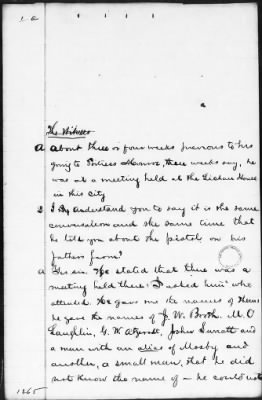 1. a
The Witness
A About three or four weeks previous to his
going to Fortress Monroe, three weeks say, he
was at a meeting held at the Lichau House
in this city
Q I understand you to say it is the same
conversation and the same time that
he told you about the pistol, on his
fathers farm?
A Yes sir. He stated that there was a
meeting held there. I asked him who
attended. He gave me the names of them:
he gave the names of J. W. Booth, M. O
Laughlin, G. W Atzerodt, John Surratt and
a man with an alias of Mosby and
another, a small man, that he did
not know the name of – he could not
1265